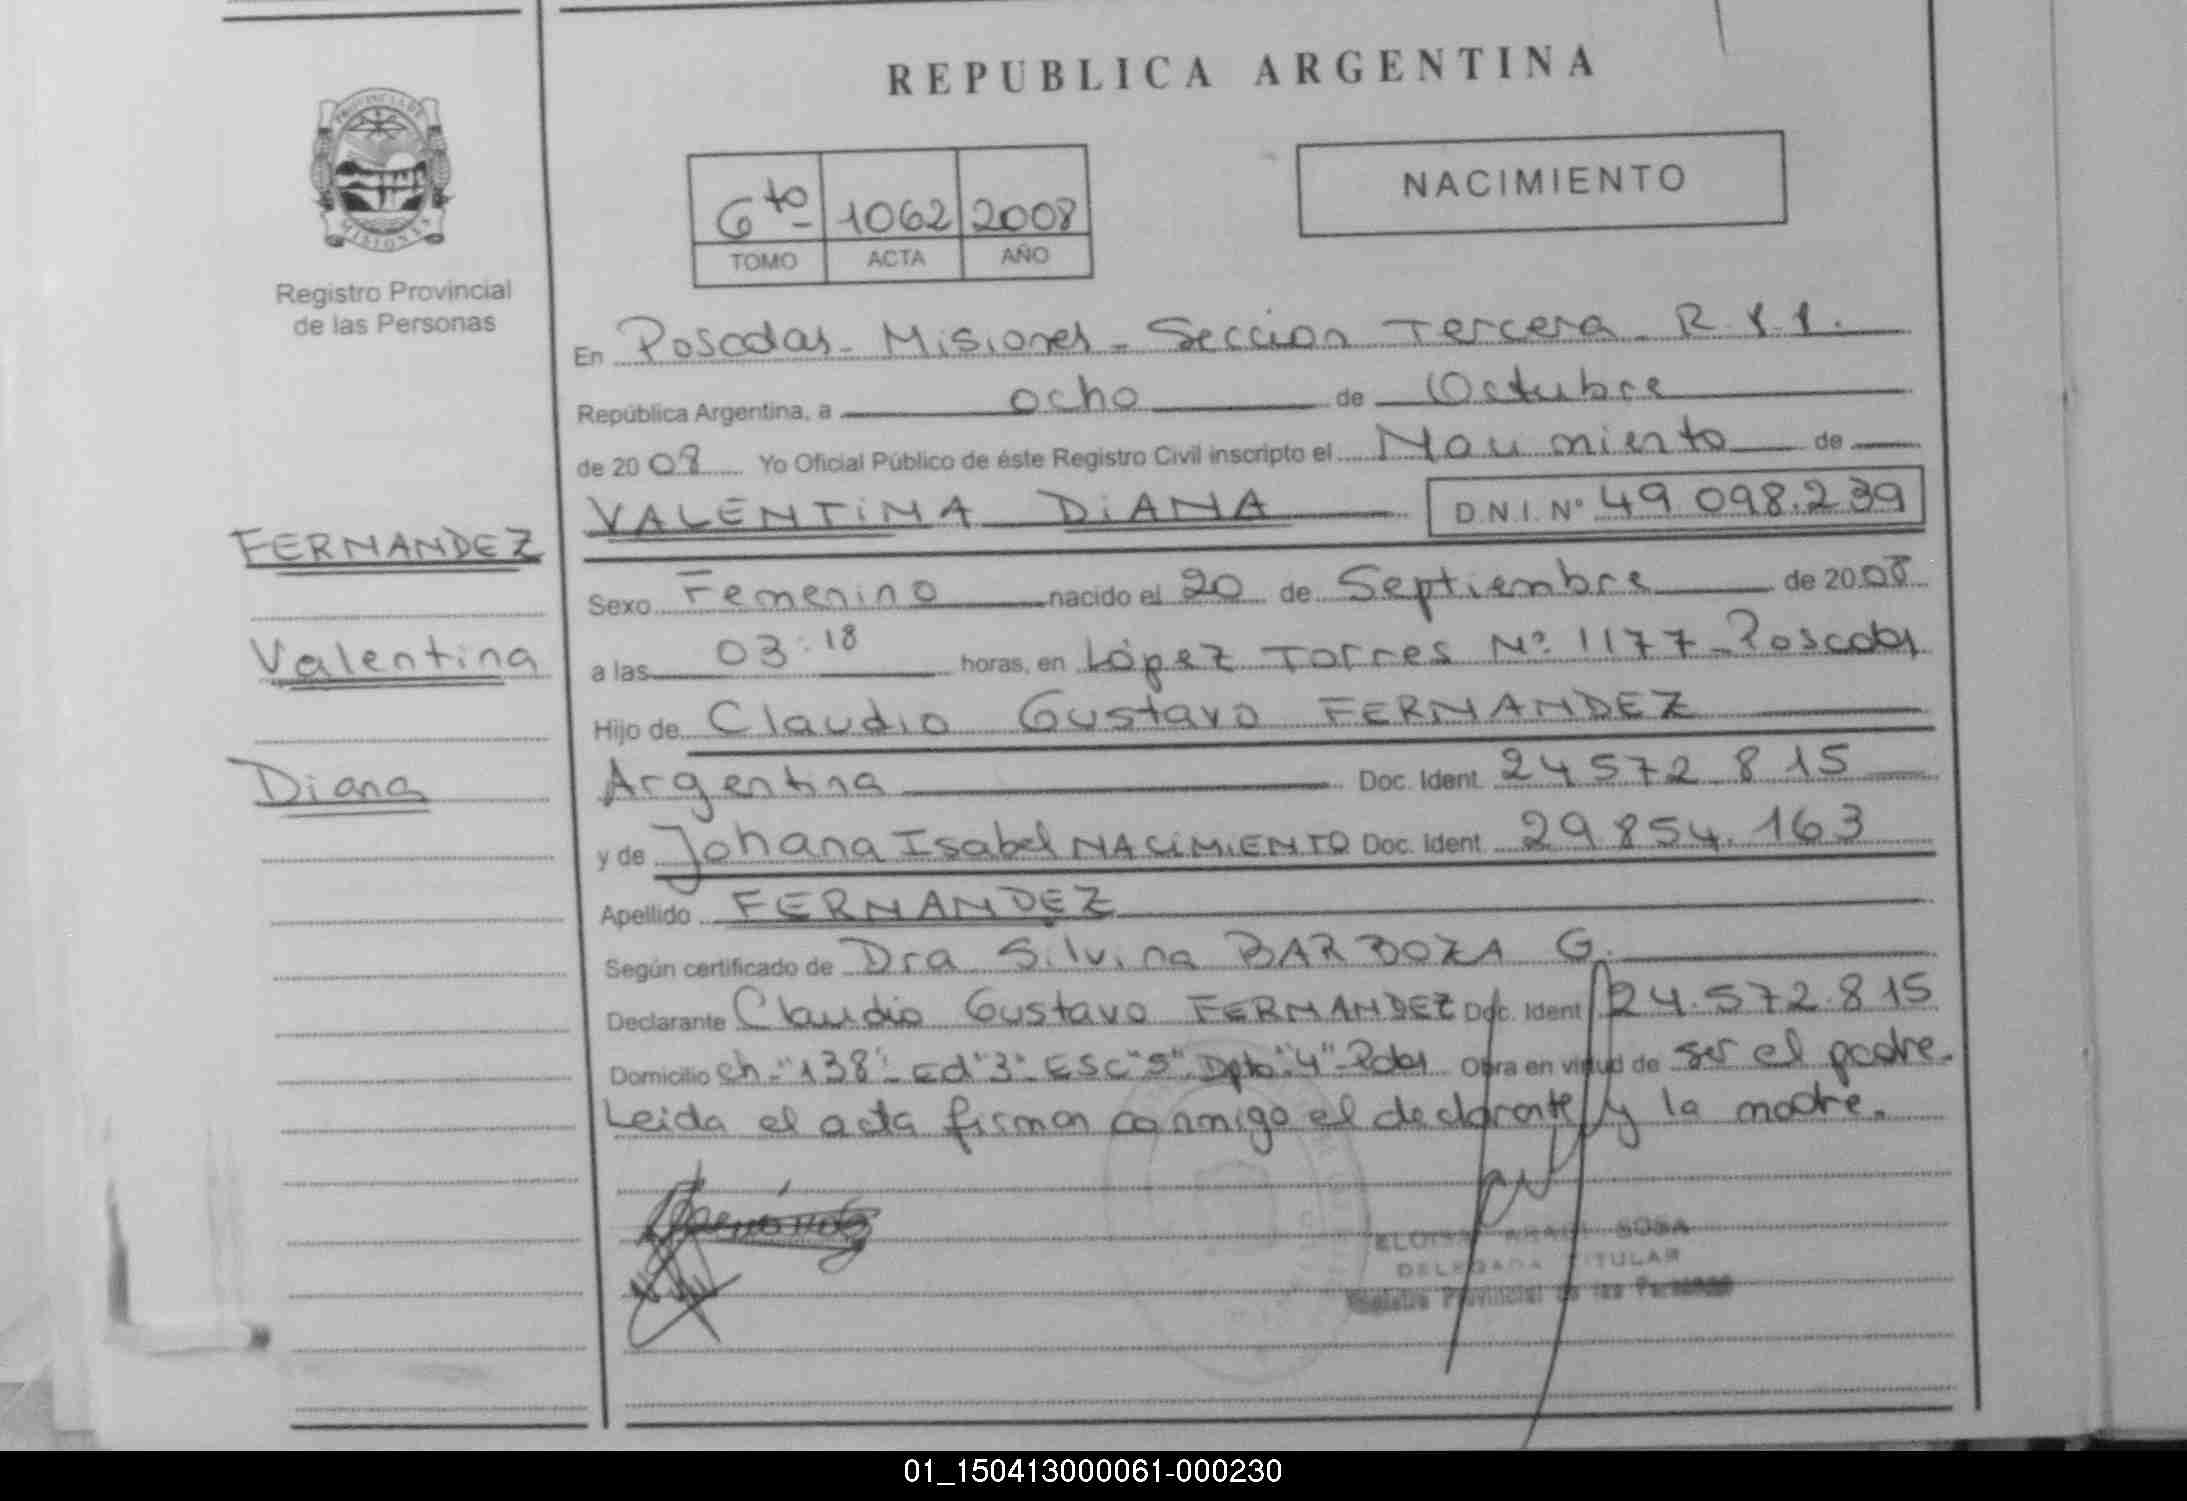 REPUBLICA ARGENTINA
PROVINCIA DE
MISIONES
Registro Provincial
de las Personas
6to 1062 2008
TOMO ACTA AÑO
NACIMIENTO
En Posadas - Misiones - Sección Tercera - R.
República Argentina, a ocho de Octubre
de 2008 Yo Oficial Público de éste Registro Civil inscripto el Nacimiento de
VALENTINA DIANA D.N.I. Nº 49 098.239
FERNANDEZ
Valentina
Diana
Sexo Femenino nacido el 20 de Septiembre de 2008
a las 03:18 horas, en López Torres Nº 1177 - Posadas
Hijo de Claudio Gustavo FERNANDEZ
Argentina Doc. Ident. 24 572 815
y de Johana Isabel NACIMIENTO Doc. Ident. 29 854.163
Apellido FERNANDEZ
Según certificado de Dra Silvina BARBOZA G.
Declarante Claudio Gustavo FERNANDEZ Doc. Ident 24.572.815
Domicilio ch "138" - Ed "3" - ESC "5" - Dpto "4" - Pdas Obra en virtud de ser el padre.
Leida el acta firman conmigo el declarante y la madre.
SOSA
DELEGADA TITULAR
Registro Provincial de las Personas
01_150413000061-000230